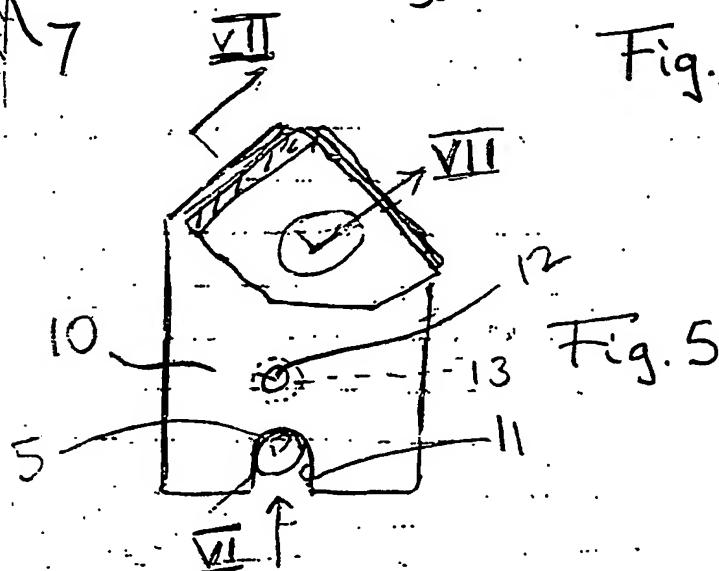 7
VII
Fig.
VII
12
10
Fig. 5
13
5
11
VI